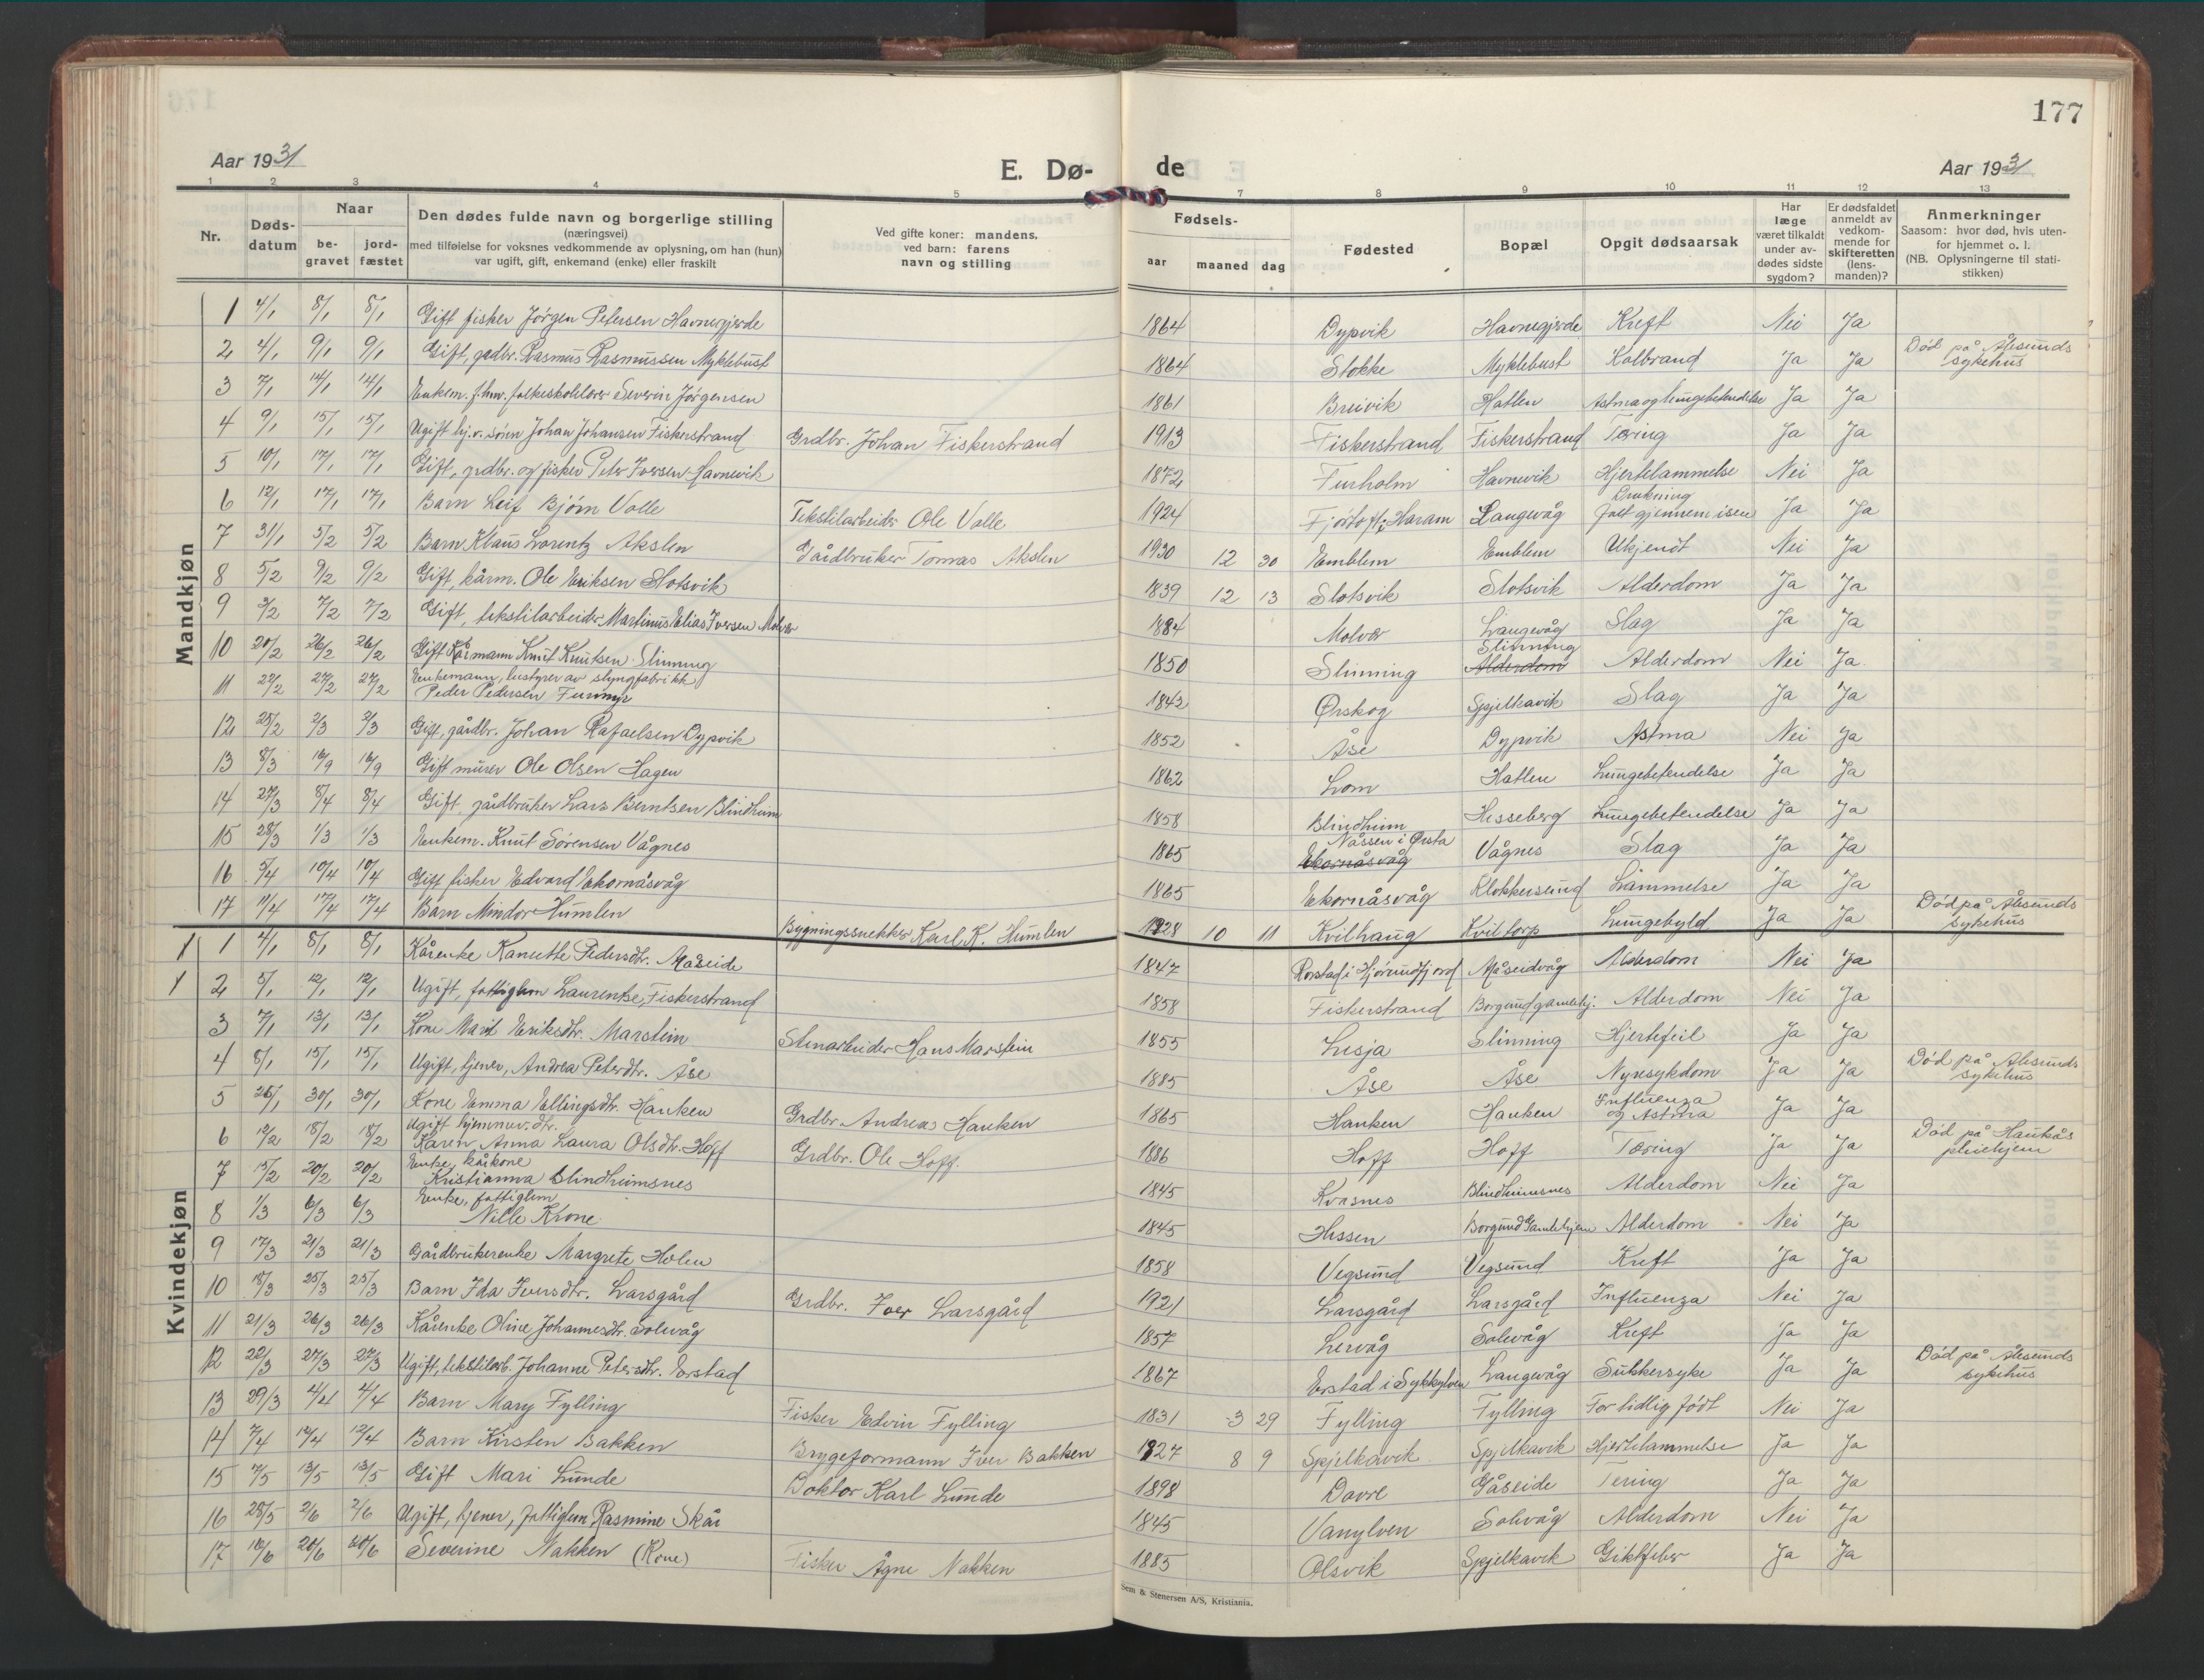 177
Aar 1931
E. Dø-
de
Aar 1931
1 2 3 4 5 7 8 9 10 11 12 13
Nr.
Døds-
datum
Naar
be-
gravet
jord-
fæstet
Den dødes fulde navn og borgerlige stilling
(næringsvei)
med tilføielse for voksnes vedkommende av oplysning, om han (hun)
var ugift, gift, enkemand (enke) eller fraskilt
Ved gifte koner: mandens,
ved barn: farens
navn og stilling
Fødsels-
aar maaned dag
Fødested
Bopæl
Opgit dødsaarsak
Har
læge
været tilkaldt
under av-
dødes sidste
sygdom?
Er dødsfaldet
anmeldt av
vedkom-
mende for
skifteretten
(lens-
manden)?
Anmerkninger
Saasom: hvor død, hvis uten-
for hjemmet o. l.
(NB. Oplysningerne til stati-
stikken)
Mandkjøn
1 4/1 8/1 8/1 Gift fisker Jørgen Petersen Havnegjerde 1864 Dypvik Havnegjerde Kreft Nei Ja
2 4/1 9/1 9/1 Gift, gadbr. Rasmus Rasmussen Myklebust 1864 Stokke Myklebust Kolbrand Ja Ja Død på Ålesunds
sykehus
3 7/1 14/1 14/1 Enkem. f. hnv. folkeskolelærer Severin Jørgensen 1861 Breivik Hatlen Astma og lungebetendelse Ja Ja
4 9/1 15/1 15/1 Ugift hj.v. sønn Johan Johansen Fiskerstrand Grdbr. Johan Fiskerstrand 1913 Fiskerstrand Fiskerstrand Tæring Ja Ja
5 10/1 17/1 17/1 Gift, grdbr. og fisker Peter Iversen Havnevik 1872 Furholm Havnevik Hjertelammelse Nei Ja
6 12/1 17/1 17/1 Barn Leif Bjørn Valle Tekstilarbeider Ole Valle 1924 Fjørtoft i Haram Langevåg Drukning
falt gjennem isen Ja Ja
7 31/1 5/2 5/2 Barn Klaus Lorentz Akslen Gårdbruker Tomas Akslen 1930 12 30 Emblem Emblem Ukjendt Nei Ja
8 5/2 9/2 9/2 Gift, kårm. Ole Eriksen Slotsvik 1839 12 13 Slotsvik Slotsvik Alderdom Ja Ja
9 3/2 7/2 7/2 Gift, tekstilarbeider Martinus Elias Iversen Molvær 1884 Molvær Langevåg Slag Ja Ja
10 20/2 26/2 26/2 Gift Kårmann Knut Knutsen Slinning 1850 Slinning Slinning
Alderdom Alderdom Nei Ja
11 22/2 27/2 27/2 Enkemann, bestyrer av slyngfabrikk
Peder Pedersen Furmyr 1842 Ørskog Spjelkavik Slag Ja Ja
12 25/2 2/3 2/3 Gift, gårdbr. Johan Rafaelsen Dypvik 1852 Åse Dypvik Astma Nei Ja
13 8/3 16/9 16/9 Gift murer Ole Olsen Hagen 1862 Lom Hatlen Lungebetendelse Ja Ja
14 27/3 8/4 8/4 Gift gårdbruker Lars Berntsen Blindheim 1858 Blindheim Hesseberg Lungebetendelse Ja Ja
15 28/3 1/3 1/3 Enkem. Knut Sørensen Vågnes 1865 Nåssen i Ørsta
Ekornåsvåg Vågnes Slag Ja Ja
16 5/4 10/4 10/4 Gift fisker Edvard Ekornåsvåg 1865 Ekornåsvåg Klokkersund Lammelse Ja Ja
17 11/4 17/4 17/4 Barn Mindor Humlen Bygningssnekker Karl K. Humlen 1928 10 11 Kvilhaug Kviltorp Lungebyld Ja Ja Død på Ålesunds
sykehus
Kvindekjøn
1 4/1 8/1 8/1 Kårenke Kanutte Pedersdtr. Måseide 1847 Rorstad i Hjørundfjord Måseidvåg Alderdom Nei Ja
2 5/1 12/1 12/1 Ugift, fattiglem Laurentse, Fiskerstrand 1858 Fiskerstrand Borgund gamlehj. Alderdom Nei Ja
3 7/1 13/1 13/1 Kone Marit Eriksdtr. Marstein Stenarbeider Hans Marstein 1855 Lesja Slinning Hjertefeil Ja Ja
4 8/1 15/1 15/1 Ugift, tjener, Andrea Petersdtr. Åse 1885 Åse Åse Nyresykdom Ja Ja Død på Ålesunds
sykehus
5 26/1 30/1 30/1 Kone Emma Ellingsdtr. Hanken Grdbr. Andreas Hanken 1865 Hanken Hanken Influenza
og Astma Ja Ja
6 12/2 18/2 18/2 Ugift hjemmev. dtr.
Karen Anna Laura Olsdtr. Hoff Grdbr. Ole Hoff. 1886 Hoff Hoff Tæring Ja Ja Død på Haukås
pleiehjem
7 15/2 20/2 20/2 Enke, kårkone
Kristianna Blindheimsnes 1845 Kvasnes Blindheimsnes Alderdom Nei Ja
8 1/3 6/3 6/3 Enke, fattiglem
Nille Krone 1845 Hessen Borgund Gamlehjem Alderdom Nei Ja
9 17/3 21/3 21/3 Gårdbrukerenke Margrete Holen 1858 Vegsund Vegsund Kreft Ja Ja
10 18/3 25/3 25/3 Barn Ida Iversdtr. Larsgård Grdbr. Iver Larsgård 1921 Larsgård Larsgård Influenza Nei Ja
11 21/3 26/3 26/3 Kårenke Oline Johannesdtr. Solevåg 1857 Lervåg Solevåg Kreft Ja Ja
12 22/3 27/3 27/3 Ugift, tekstilarb. Johanne Petersdtr. Erstad 1867 Erstad i Sykkylven Langevåg Sukkersyke Ja Ja Død på Ålesunds
sykehus
13 29/3 4/4 4/4 Barn Mary Fylling Fisker Edvin Fylling 1831 3 29 Fylling Fylling For tidlig født Nei Ja
14 7/4 12/4 12/4 Barn Kirsten Bakken Bryggeformann Iver Bakken 1927 8 9 Spjelkavik Spjelkavik Hjertelammelse Ja Ja
15 7/5 13/5 13/5 Gift Mari Lunde Doktor Karl Lunde 1898 Dovre Gåseide Tering Ja Ja
16 28/5 2/6 2/6 Ugift, tjener, fattiglem Rasmine Skår 1845 Vanylven Solevåg Alderdom Nei Ja
17 16/6 20/6 20/6 Severine Nakken (Kone) Fisker Ågne Nakken 1885 Olsvik Spjelkavik Giktfeber Ja Ja
Sem & Stenersen A/S, Kristiania.